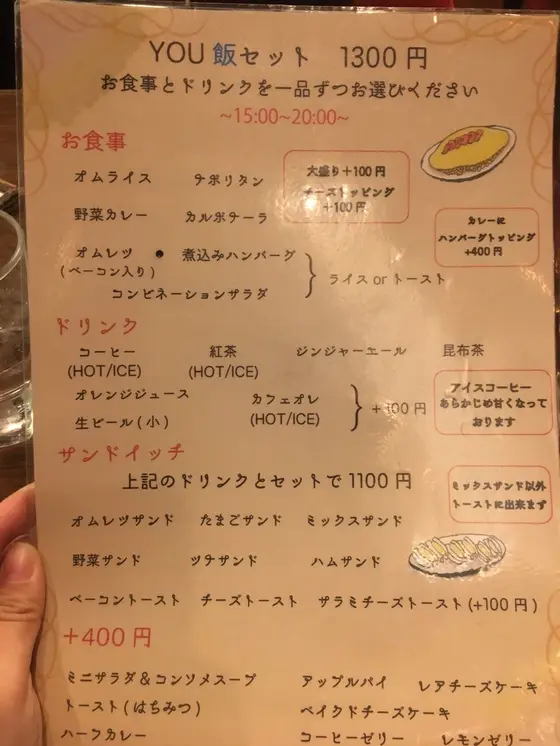 YOU 飯セット 1300 円
お食事とドリンクを一品ずつお選びください
~15:00~20:00~
お食事
オムライス ナポリタン
大盛り+100円
チーズトッピング
+100円
野菜カレー カルボナーラ
カレーに
ハンバーグトッピング
+400円
オムレツ ● 煮込みハンバーグ
(ベーコン入り)
コンビネーションサラダ
ライス or トースト
ドリンク
コーヒー 紅茶 ジンジャーエール 昆布茶
(HOT/ICE) (HOT/ICE)
オレンジジュース カフェオレ
生ビール(小) (HOT/ICE)
+100円
アイスコーヒー
あらかじめ甘くなって
おります
サンドイッチ
上記のドリンクとセットで1100円
ミックスサンド以外
トーストに出来ます
オムレツサンド たまごサンド ミックスサンド
野菜サンド ツナサンド ハムサンド
ベーコントースト チーズトースト サラミチーズトースト(+100円)
+400円
ミニサラダ&コンソメスープ アップルパイ レアチーズケーキ
トースト(はちみつ) ベイクドチーズケーキ
ハーフカレー コーヒーゼリー レモンゼリー